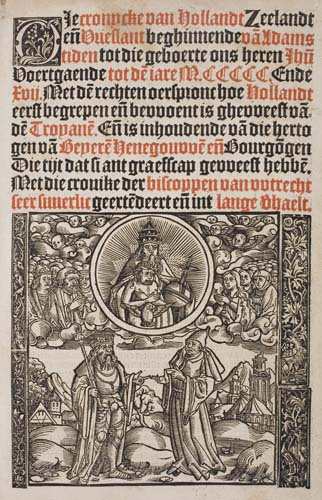 Die cronycke van Hollandt Zeelandt
eñ Vrieslant beghinnende vã Adams
tiden tot die geboerte ons heren Jhũ
Voertgaende tot dẽ iare M.CCCCC. Ende
Xvij. Met dẽ rechten oerspronc hoe Hollandt
eerst begrepen eñ bewoent is gheweest vã
dẽ Troyanẽ. Eñ is inhoudende vã die herto
gen vã Beyerẽ Henegouwẽ eñ Bourgõgen
Die tijt dat si ant graefscap geweest hebbẽ.
Met die cronike der biscoppen van utrecht
seer suuerlic geextẽdeert eñ int lange vhaelt.